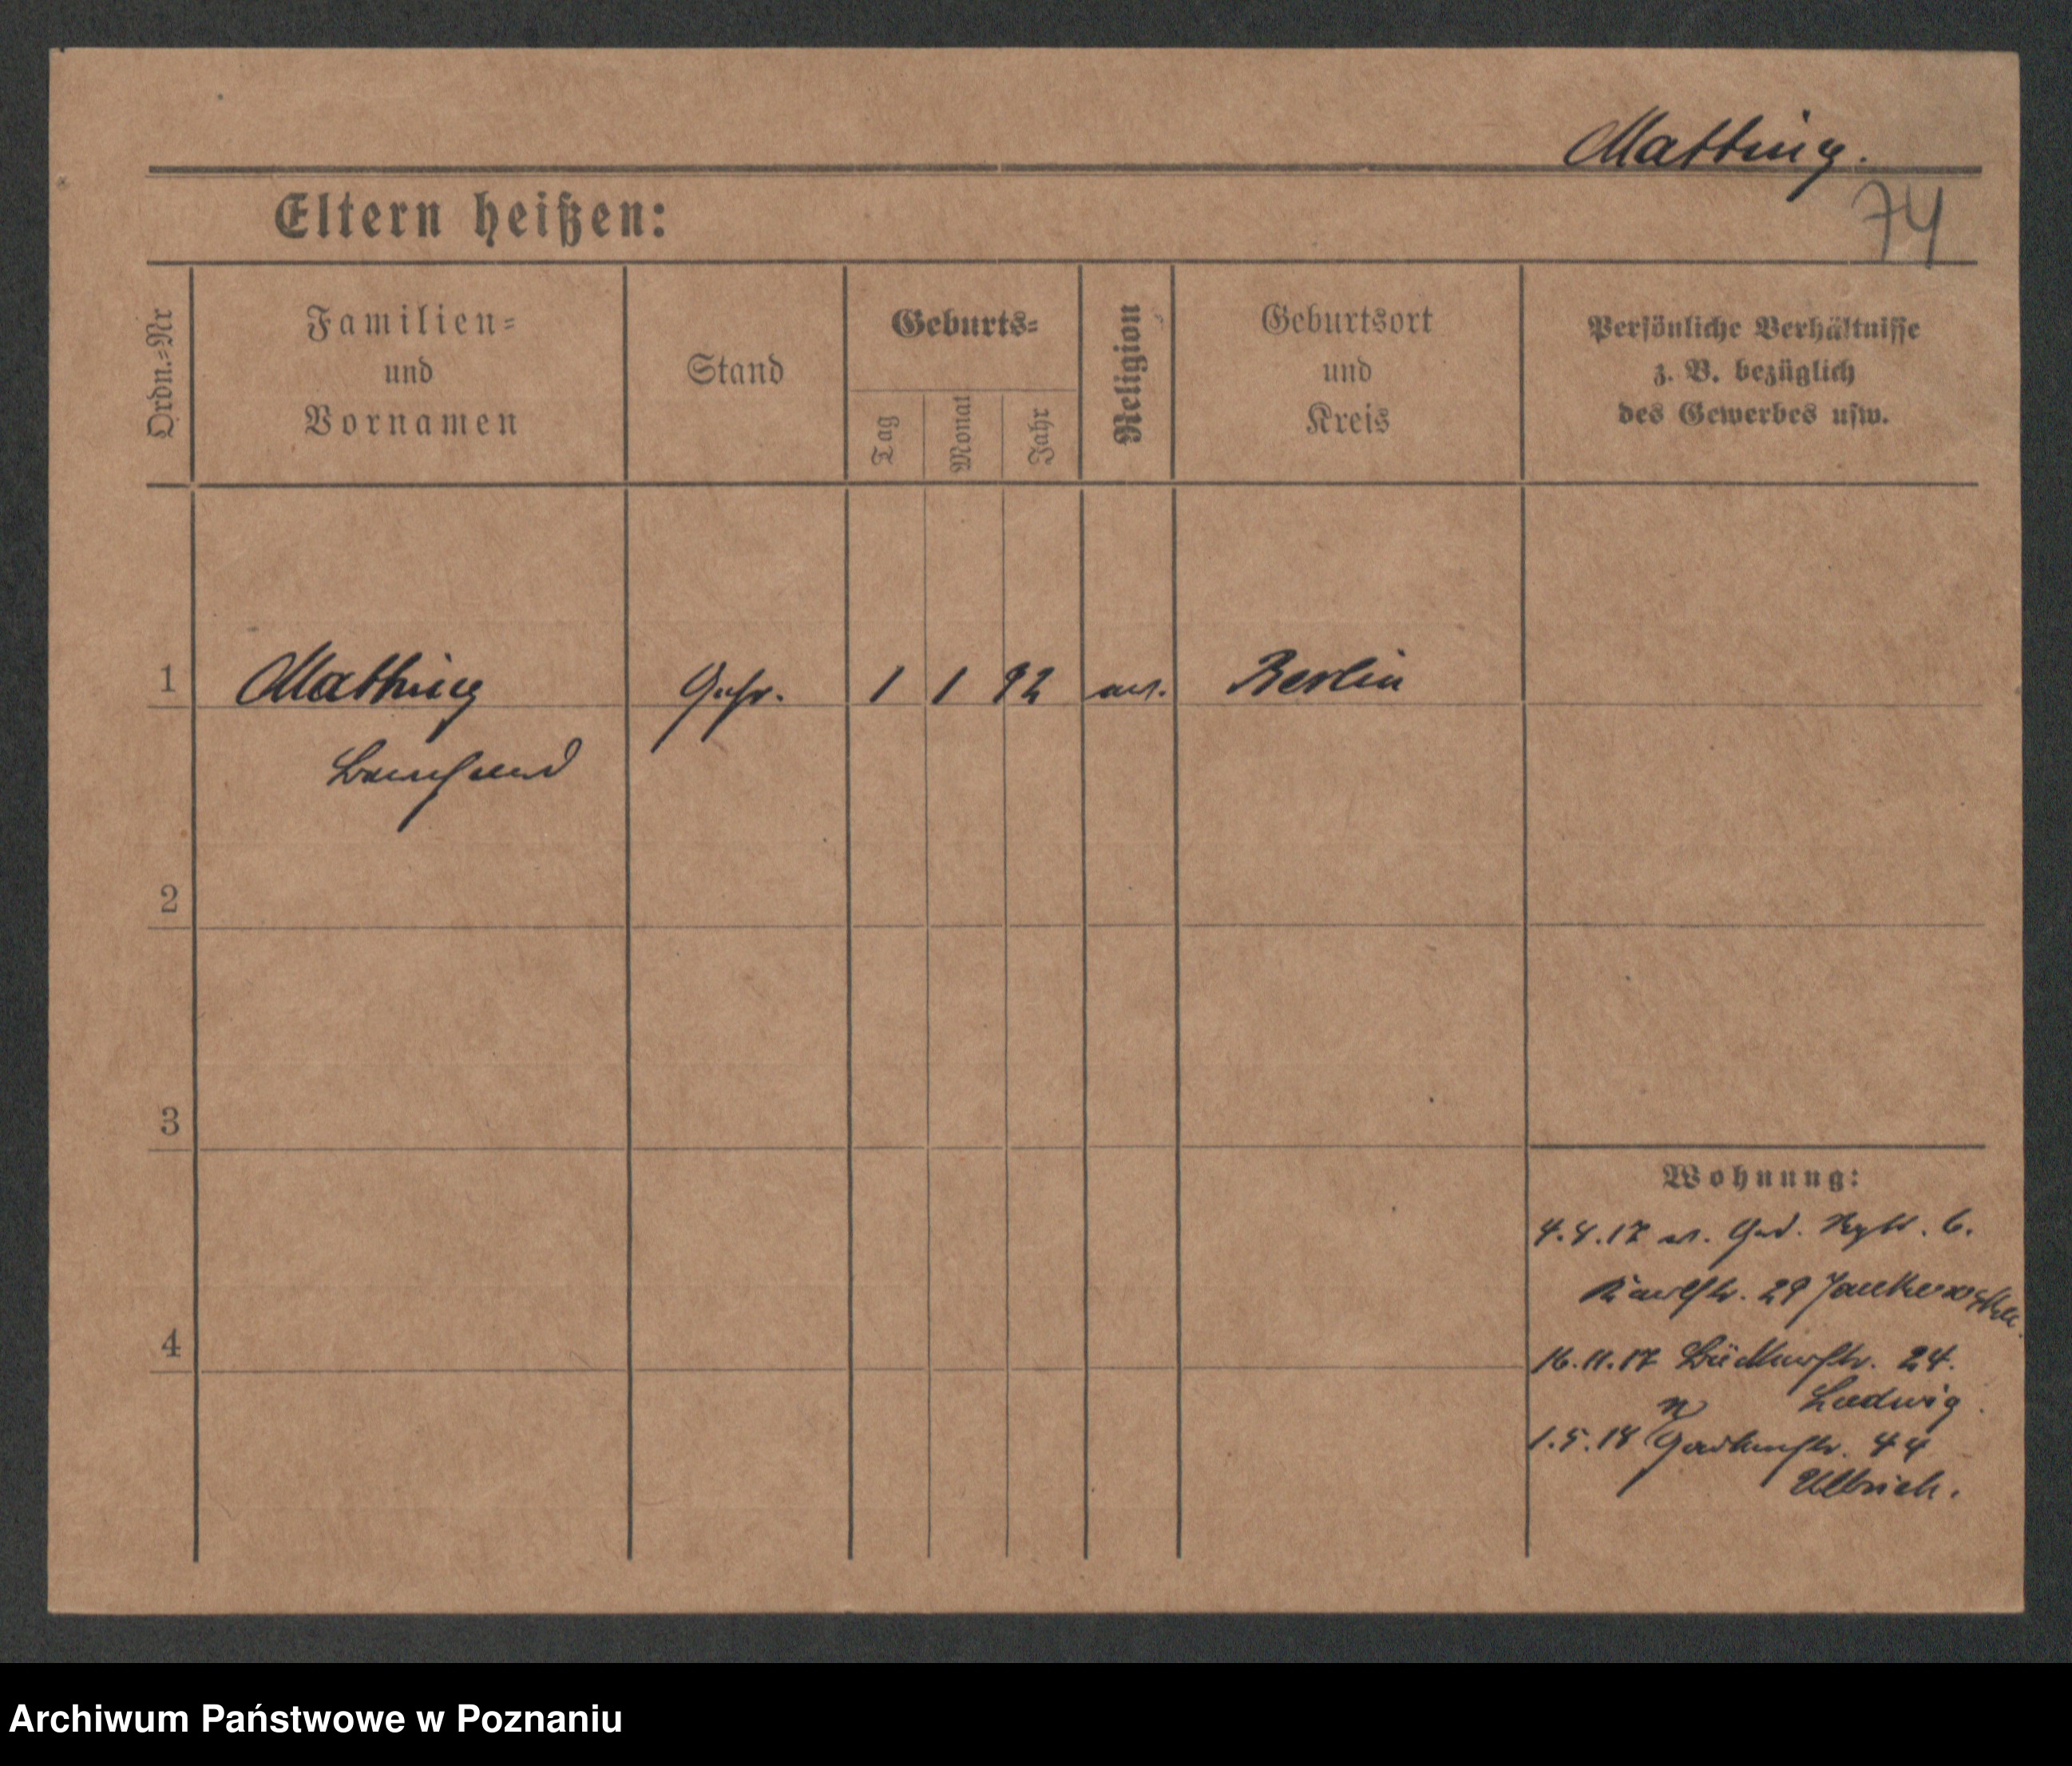 Matthing.
74
Eltern heißen:
Ordn.=Nr
Familien=
und
Vornamen
Stand
Geburts=
Tag
Monat
Jahr
Religion
Geburtsort
und
Kreis
Persönliche Verhältnisse
z. B. bezüglich
des Gewerbes usw.
1 Matthing Gefr. 1 1 92 ev. Berlin
Bernhard
2
3
4
Wohnung:
4.4.17 v.
29
16.11.17 Blücherstr. 24.
Ludwig
1.5.18 Gartenstr. 44
Ullrich.
Archiwum Państwowe w Poznaniu